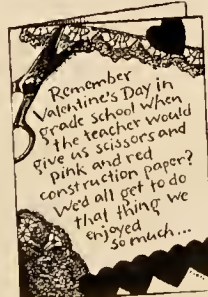 Remember
Valentine's Day in
grade school when
the teacher would
give us scissors and
pink and red
construction paper?
We'd all get to do
that thing we
enjoyed
so much...